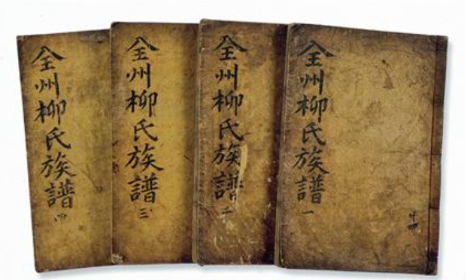 全州柳氏族譜 一
全州柳氏族譜 二
全州柳氏族譜 三
全州柳氏族譜 四